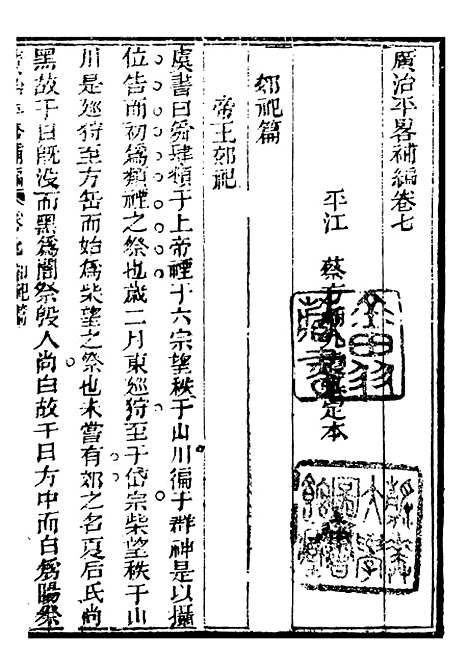 廣治平畧補編卷七
平江　蔡方炳九霞定本
郊祀篇
帝王郊祀
虞書曰舜肆類于上帝禋于六宗望秩于山川徧于群神是以攝
位告而初爲類禋之祭也歲二月東廵狩至于岱宗柴望秩于山
川是廵狩至方岳而始爲柴望之祭也未嘗有郊之名夏后氏尚
黑故于日旣没而黑爲闇祭殷人尚白故于日方中而白爲陽祭
廣治平畧補編　卷七　郊祀篇